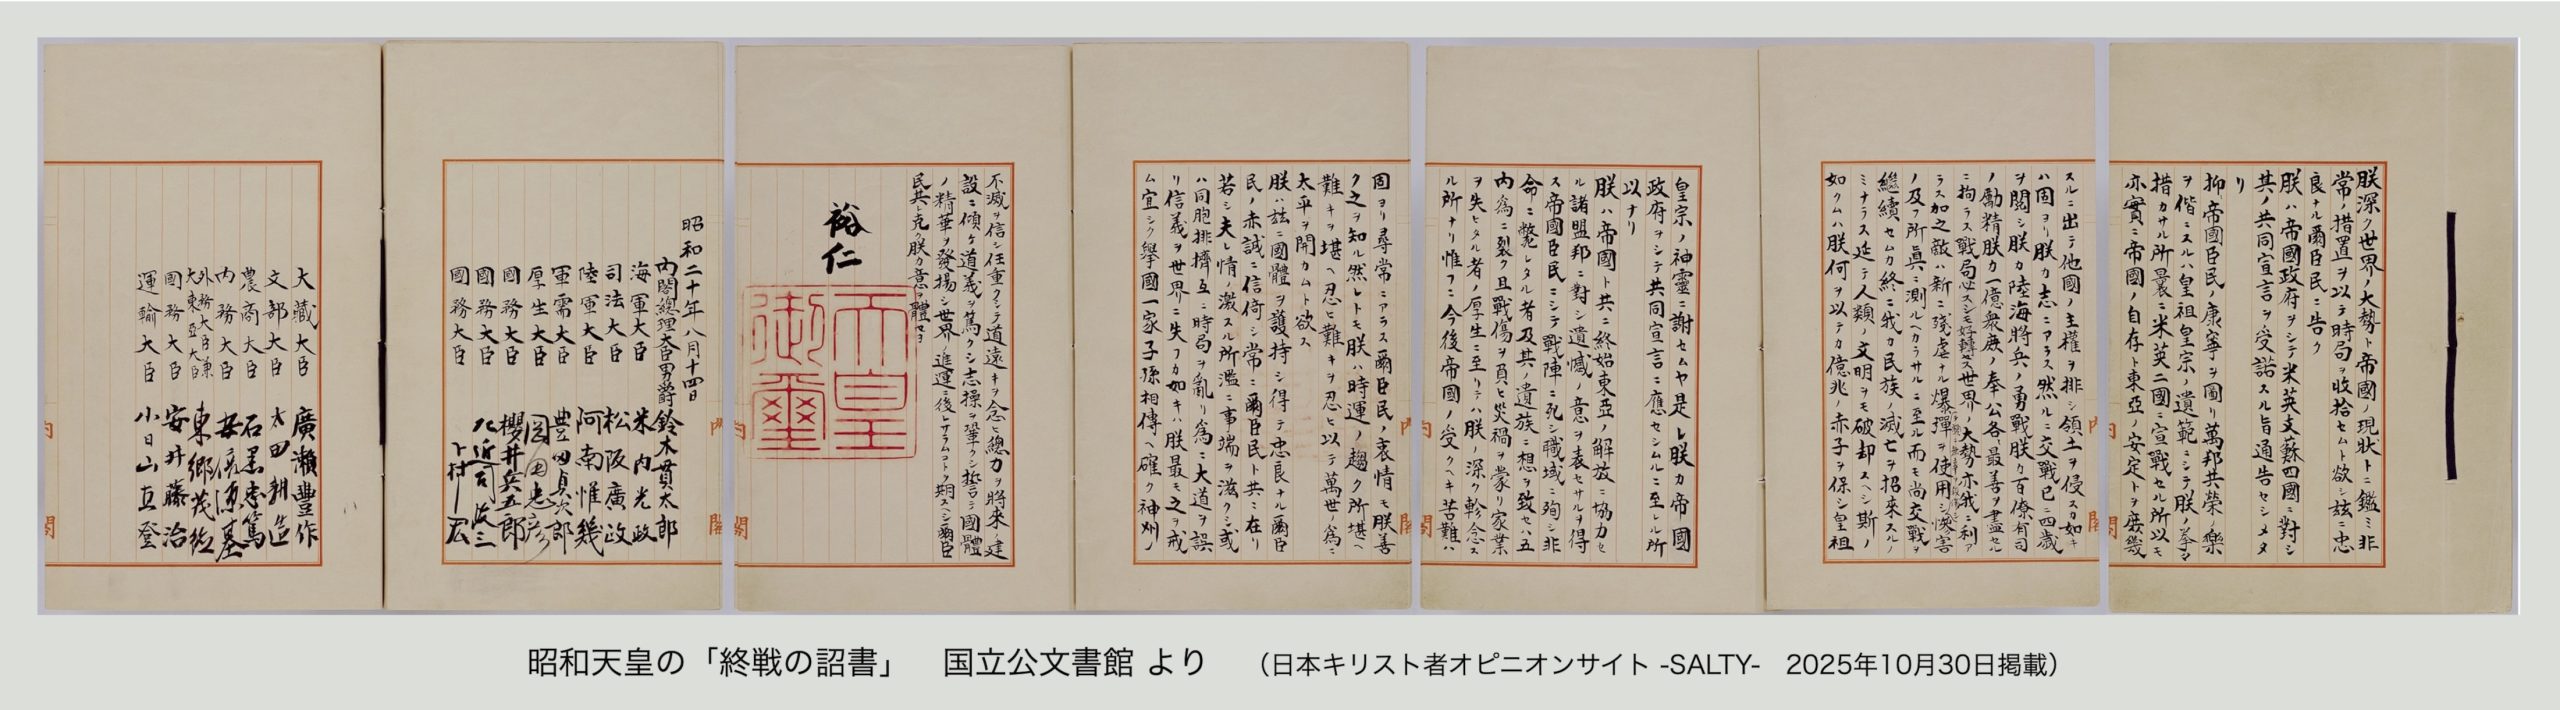 朕深ク世界ノ大勢ト帝國ノ現状トニ鑑ミ非
常ノ措置ヲ以テ時局ヲ收拾セムト欲シ茲ニ忠
良ナル爾臣民ニ告ク
朕ハ帝國政府ヲシテ米英支蘇四國ニ對シ
其ノ共同宣言ヲ受諾スル旨通告セシメタ
リ
抑帝國臣民ノ康寧ヲ圖リ萬邦共榮ノ樂
ヲ偕ニスルハ皇祖皇宗ノ遺範ニシテ朕ノ拳々
措カサル所曩ニ米英二國ニ宣戰セル所以モ
亦實ニ帝國ノ自存ト東亞ノ安定トヲ庶幾
スルニ出テ他國ノ主權ヲ排シ領土ヲ侵スカ如キ
ハ固ヨリ朕カ志ニアラス然ルニ交戰已ニ四歳
ヲ閲シ朕カ陸海將兵ノ勇戰朕カ百僚有司
ノ勵精朕カ一億衆庶ノ奉公各最善ヲ盡セル
ニ拘ラス戰局必スシモ好轉セス世界ノ大勢亦我ニ利ア
ラス加之敵ハ新ニ殘虐ナル爆彈ヲ使用シテ頻ニ無辜ヲ殺傷シ慘害
ノ及フ所眞ニ測ルヘカラサルニ至ル而モ尚交戰ヲ
繼續セムカ終ニ我カ民族ノ滅亡ヲ招來スルノ
ミナラス延テ人類ノ文明ヲモ破却スヘシ斯ノ
如クムハ朕何ヲ以テカ億兆ノ赤子ヲ保シ皇祖
皇宗ノ神靈ニ謝セムヤ是レ朕カ帝國
政府ヲシテ共同宣言ニ應セシムルニ至レル所
以ナリ
朕ハ帝國ト共ニ終始東亞ノ解放ニ協力セ
ル諸盟邦ニ對シ遺憾ノ意ヲ表セサルヲ得
ス帝國臣民ニシテ戰陣ニ死シ職域ニ殉シ非
命ニ斃レタル者及其ノ遺族ニ想ヲ致セハ五
内爲ニ裂ク且戰傷ヲ負ヒ災禍ヲ蒙リ家業
ヲ失ヒタル者ノ厚生ニ至リテハ朕ノ深ク軫念ス
ル所ナリ惟フニ今後帝國ノ受クヘキ苦難ハ
固ヨリ尋常ニアラス爾臣民ノ衷情モ朕善
ク之ヲ知ル然レトモ朕ハ時運ノ趨ク所堪ヘ
難キヲ堪ヘ忍ヒ難キヲ忍ヒ以テ萬世ノ爲ニ
太平ヲ開カムト欲ス
朕ハ茲ニ國體ヲ護持シ得テ忠良ナル爾臣
民ノ赤誠ニ信倚シ常ニ爾臣民ト共ニ在リ
若シ夫レ情ノ激スル所濫ニ事端ヲ滋クシ或
ハ同胞排擠互ニ時局ヲ亂リ爲ニ大道ヲ誤
リ信義ヲ世界ニ失フカ如キハ朕最モ之ヲ戒
ム宜シク擧國一家子孫相傳ヘ確ク神州ノ
不滅ヲ信シ任重クシテ道遠キヲ念ヒ總力ヲ將來ノ建
設ニ傾ケ道義ヲ篤クシ志操ヲ鞏クシ誓テ國體
ノ精華ヲ發揚シ世界ノ進運ニ後レサラムコトヲ期スヘシ爾臣
民其レ克ク朕カ意ヲ體セヨ
裕仁
天皇
御璽
昭和二十年八月十四日
内閣總理大臣男爵 鈴木貫太郎
海軍大臣 米内光政
司法大臣 松阪廣政
陸軍大臣 阿南惟幾
軍需大臣 豊田貞次郎
厚生大臣 岡田忠彦
國務大臣 櫻井兵五郎
國務大臣 左近司政三
國務大臣 下村宏
大藏大臣 廣瀬豐作
文部大臣 太田耕造
農商大臣 石黒忠篤
内務大臣 安倍源基
外務大臣兼
大東亞大臣 東郷茂徳
國務大臣 安井藤治
運輸大臣 小日山直登
内閣
内閣
内閣
内閣
昭和天皇の「終戦の詔書」　国立公文書館 より　（日本キリスト者オピニオンサイト -SALTY-　2025年10月30日掲載）